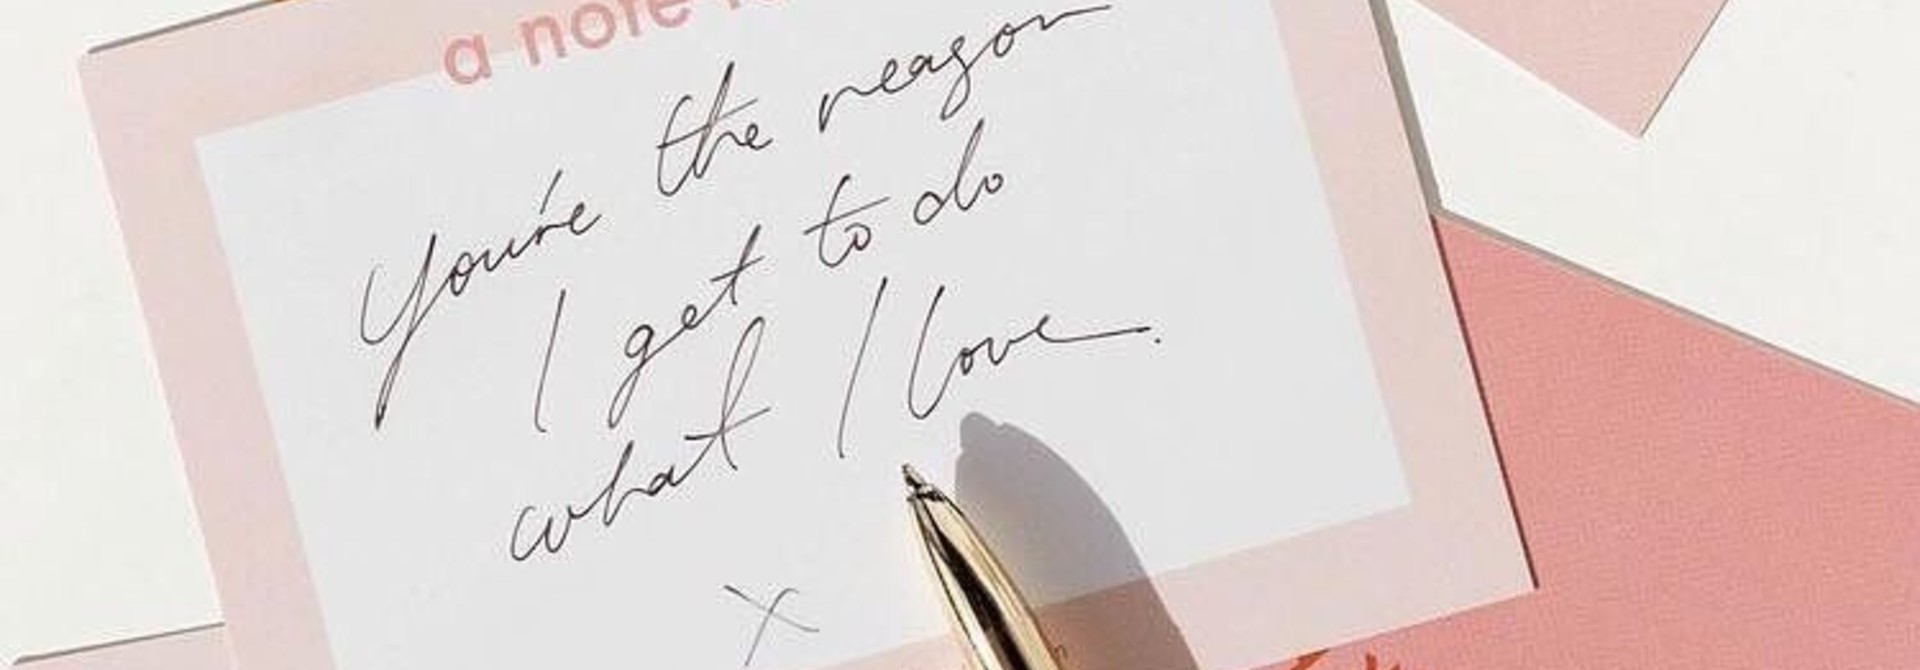 a note
You're the reason
I get to do
what I love.
x